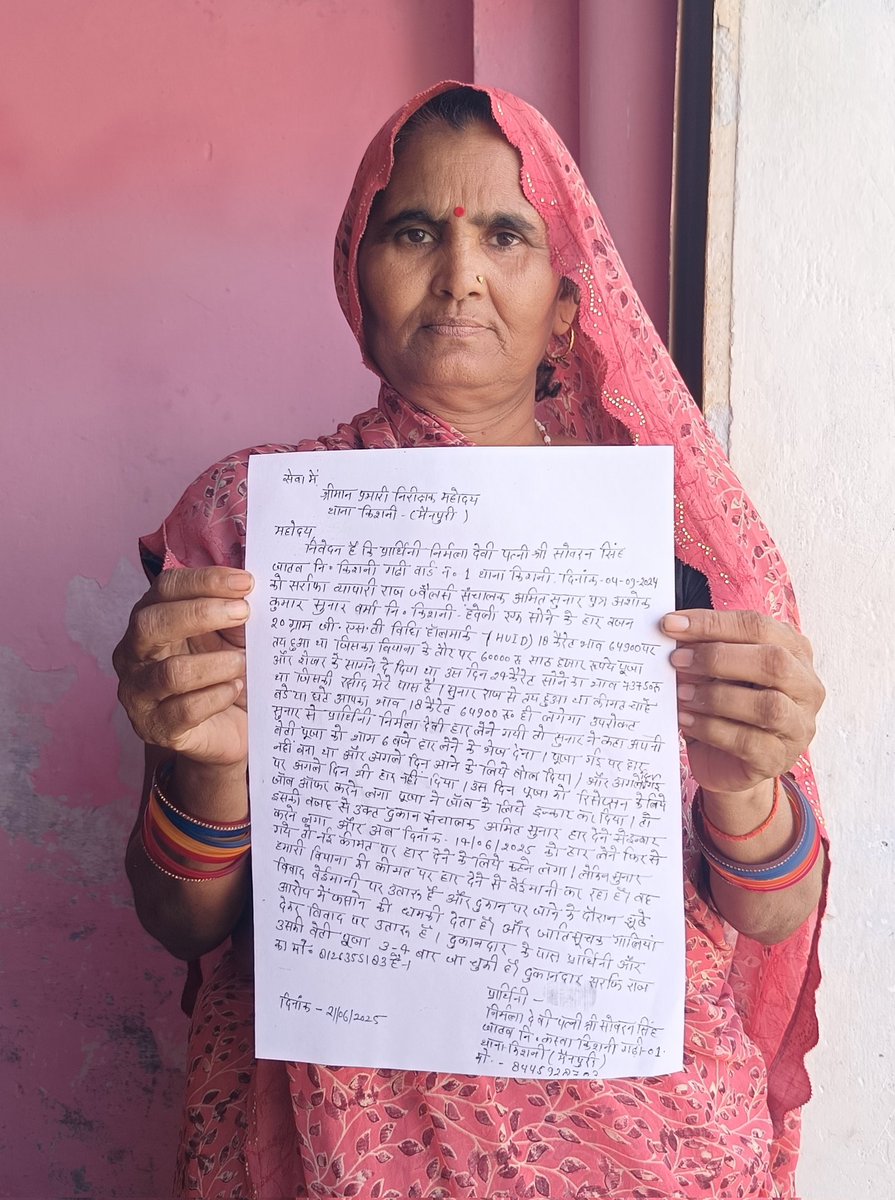 सेवा में
श्रीमान प्रभारी निरीक्षक महोदय
थाना किशनी - (मैनपुरी)
महोदय,
निवेदन है कि प्रार्थिनी निर्मला देवी पत्नी श्री सोवरन सिंह
जाटव नि० किशनी गढी वार्ड नं० 1 थाना किशनी. दिनांक-04-09-2024
को सर्राफा व्यापारी राज ज्वैलर्स संचालक अमित सुनार पुत्र अशोक
कुमार सुनार वर्मा नि० किशनी. हवेली एक सोने के हार वजन
20 ग्राम जी.एस.टी विदि हॉलमार्क (HUID) 18 कैरेट भाव 64900 पर
तय हुआ था जिसका वियाना के तौर पर 60000 रु साठ हजार रूपये पूजा
और शेखर के सामने दे दिया था उस दिन 24 कैरेट सोने का भाव 73750रु
था जिसकी रसीद मेरे पास है। सुनार राज से तय हुआ था कीमत चाहे
बडे या घटे आपका भाव 18 कैरेट 64900 रु० ही लगेगा उपरोक्त
सुनार से प्रार्थिनी निर्मला देवी हार लेने गयी तो सुनार ने कहा अपनी
बेटी पूजा को शाम 6 बजे हार लेने के भेज देना। पूजा गई पर हार
नहीं बना था और अगले दिन आने के लिये बोल दिया। और अगले दिन गई
पर अगले दिन भी हार नहीं दिया। उस दिन पूजा को रिसेप्सन के लिये
जॉब ऑफर करने लगा पूजा ने जॉब के लिये इन्कार कर दिया। तो
इसकी वजह से उक्त दुकान संचालक अमित सुनार हार देने से इन्कार
करने लगा और अब दिनांक- 19/06/2025 को हार लेने फिर से
गये तो नई कीमत पर हार देने के लिये कहने लगा। लेकिन सुनार
हमारी वियाना की कीमत पर हार देने से बेईमानी कर रहा है। वह
विवाद बेईमानी पर उतारू है और दुकान पर जाने के दौरान झूठे
आरोप में फसाने की धमकी देता है। और जातिसूचक गालियां
देकर विवाद पर उतारू है। दुकानदार के पास प्रार्थिनी और
उसकी बेटी पूजा 3-4 बार जा चुकी है। दुकानदार सर्राफ राज
का मो०
प्रार्थिनी -
निर्मला देवी पत्नी श्री सोवरन सिंह
जाटव नि० कस्वा किशनी गढी-01.
थाना-किशनी (मैनपुरी)
मो. -
दिनांक - 21/06/2025